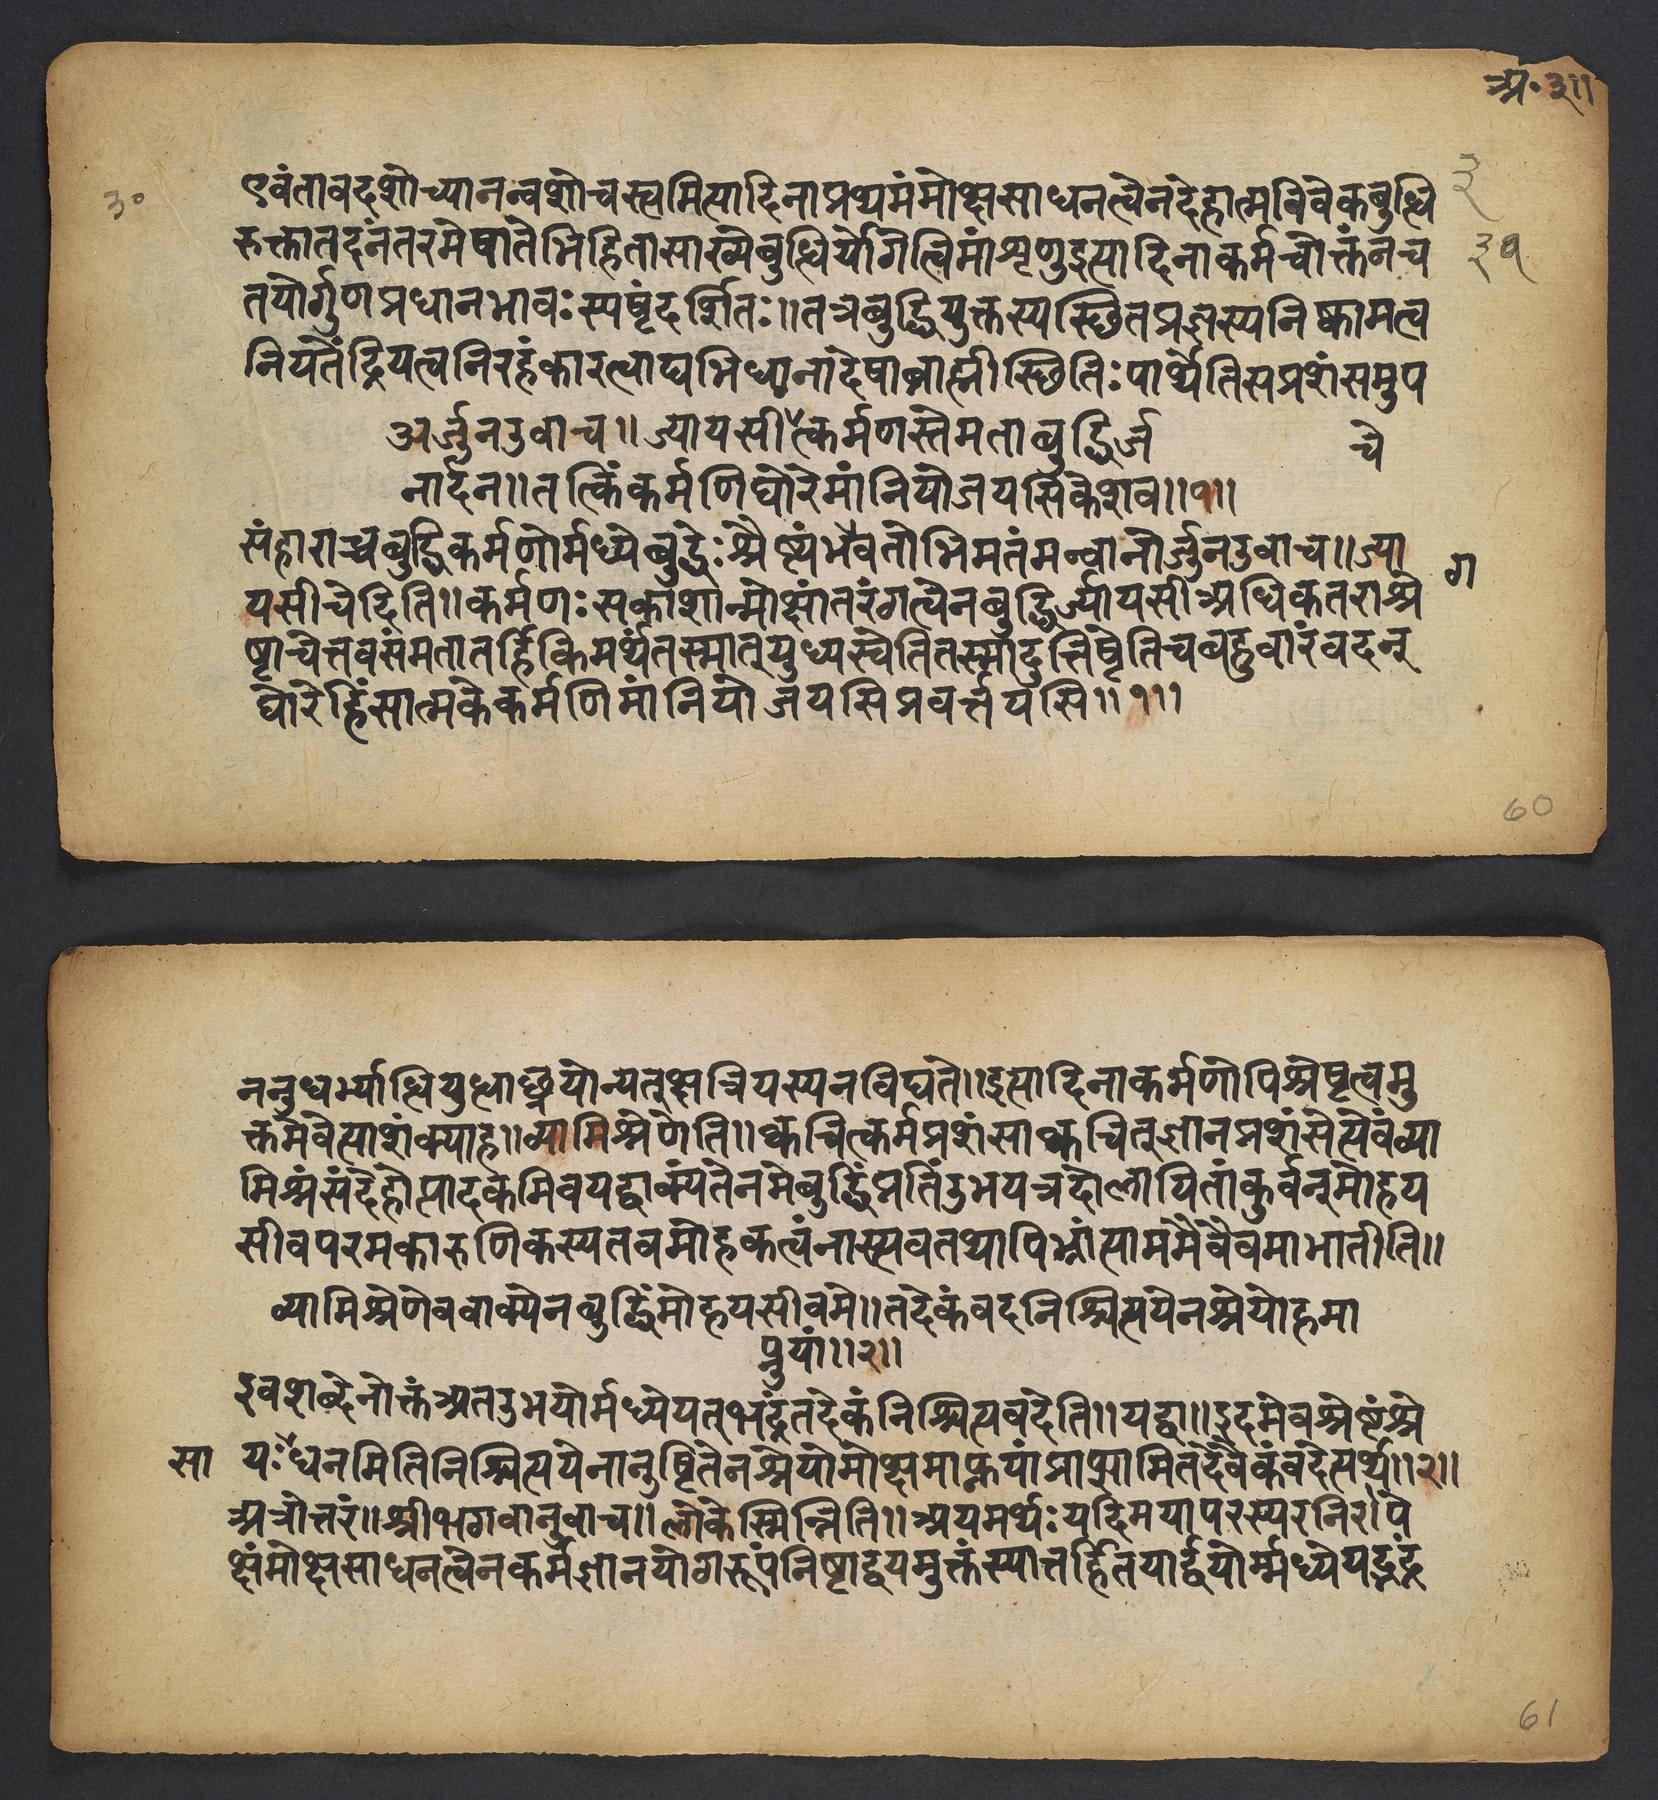 अ॰ ३॥
३
३०
एवंतावदशोच्यानन्वशोचस्त्वमित्यादिनाप्रथमंमोक्षसाधनत्वेनदेहात्मविवेकबुद्धि
रुक्तातदनंतरमेषातेभिहितासांख्येबुद्धिर्योगेत्विमांशृणुइत्यादिनाकर्मचोक्तंनच
३१
तयोर्गुणप्रधानभावःस्पष्टंदर्शितः॥तत्रबुद्धियुक्तस्यस्थितप्रज्ञस्यनिष्कामत्व
नियतेंद्रियत्वनिरहंकारत्वाद्यभिधानादेषाब्राह्मीस्थितिःपार्थेतिसप्रशंसमुप
अर्जुनउवाच॥ज्यायसीत्कर्मणस्तेमताबुद्धिर्ज
चे
नार्दन॥तत्किंकर्मणिघोरेमांनियोजयसिकेशव॥१॥
संहाराच्चबुद्धिकर्मणोर्मध्येबुद्धेःश्रैष्ट्यंभैवतोभिमतंमन्वानोर्जुनउवाच॥ज्या
ग
यसीचेदिति॥कर्मणःसकाशान्मोक्षांतरंगत्वेनबुद्धिर्ज्यायसीअधिकतराश्रे
ष्टाचेत्तवसंमतातर्हिकिमर्थंतस्मात्युध्यस्वेतितस्मादुत्तिष्टेतिचबहुवारंवदन्
घोरेहिंसात्मकेकर्मणिमांनियोजयसिप्रवर्त्तयसि॥१॥
60
ननुधर्म्याद्धियुद्धाछ्रेयोन्यत्क्षत्रियस्यनविद्यते॥इत्यादिनाकर्मणोपिश्रेष्टत्वमु
क्तमेवेत्याशंक्याह॥व्यामिश्रेणेति॥क्वचित्कर्मप्रशंसाक्वचित्ज्ञानप्रशंसेत्येवंव्या
मिश्रंसंदेहोत्पादकमिवयद्वाक्यंतेनमेबुद्धिंप्रतिंउभयत्रदोलायितांकुर्वन्मोहय
सीवपरमकारुणिकस्यतवमोहकत्वंनास्त्येवतथापिभ्रांत्याममैवैवमाभातीति॥
व्यामिश्रेणेववाक्येनबुद्धिंमोहयसीवमे॥तदेकंवदनिश्चित्ययेनश्रेयोहमा
प्नुयां॥२॥
इवशब्देनोक्तंअतउभयोर्मध्येयत्भद्रंतदेकंनिश्चित्यवदेति॥यद्वा॥इदमेवश्रेष्टंश्रे
सा
यःधनमितिनिश्चित्ययेनानुष्टितेनश्रेयोमोक्षमाप्नुयांप्राप्स्यामितदेवैकंवदेत्यर्थः॥२॥
अत्रोत्तरं॥श्रीभगवानुवाच॥लोकेस्मिन्निति॥अयमर्थःयदिमयापरस्परनिरपे
क्षंमोक्षसाधनत्वेनकर्मज्ञानयोगरूपंनिष्टाद्वयमुक्तंस्यात्तर्हितयोर्द्वयोर्मध्येयद्भद्रं
61